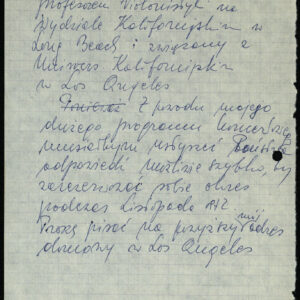 profesorem Violonistyki na
Wydziale Kalifornijskim w
Long Beach i związany z
Kalifornijskim
w Los Angeles
Z powodu mojego
dużego programu
musiałbym
odpowiedź możliwie szybko, by
zarezerwować sobie okres
podczas listopada
Proszę pisać na przyszły mój adres
domowy w Los Angeles